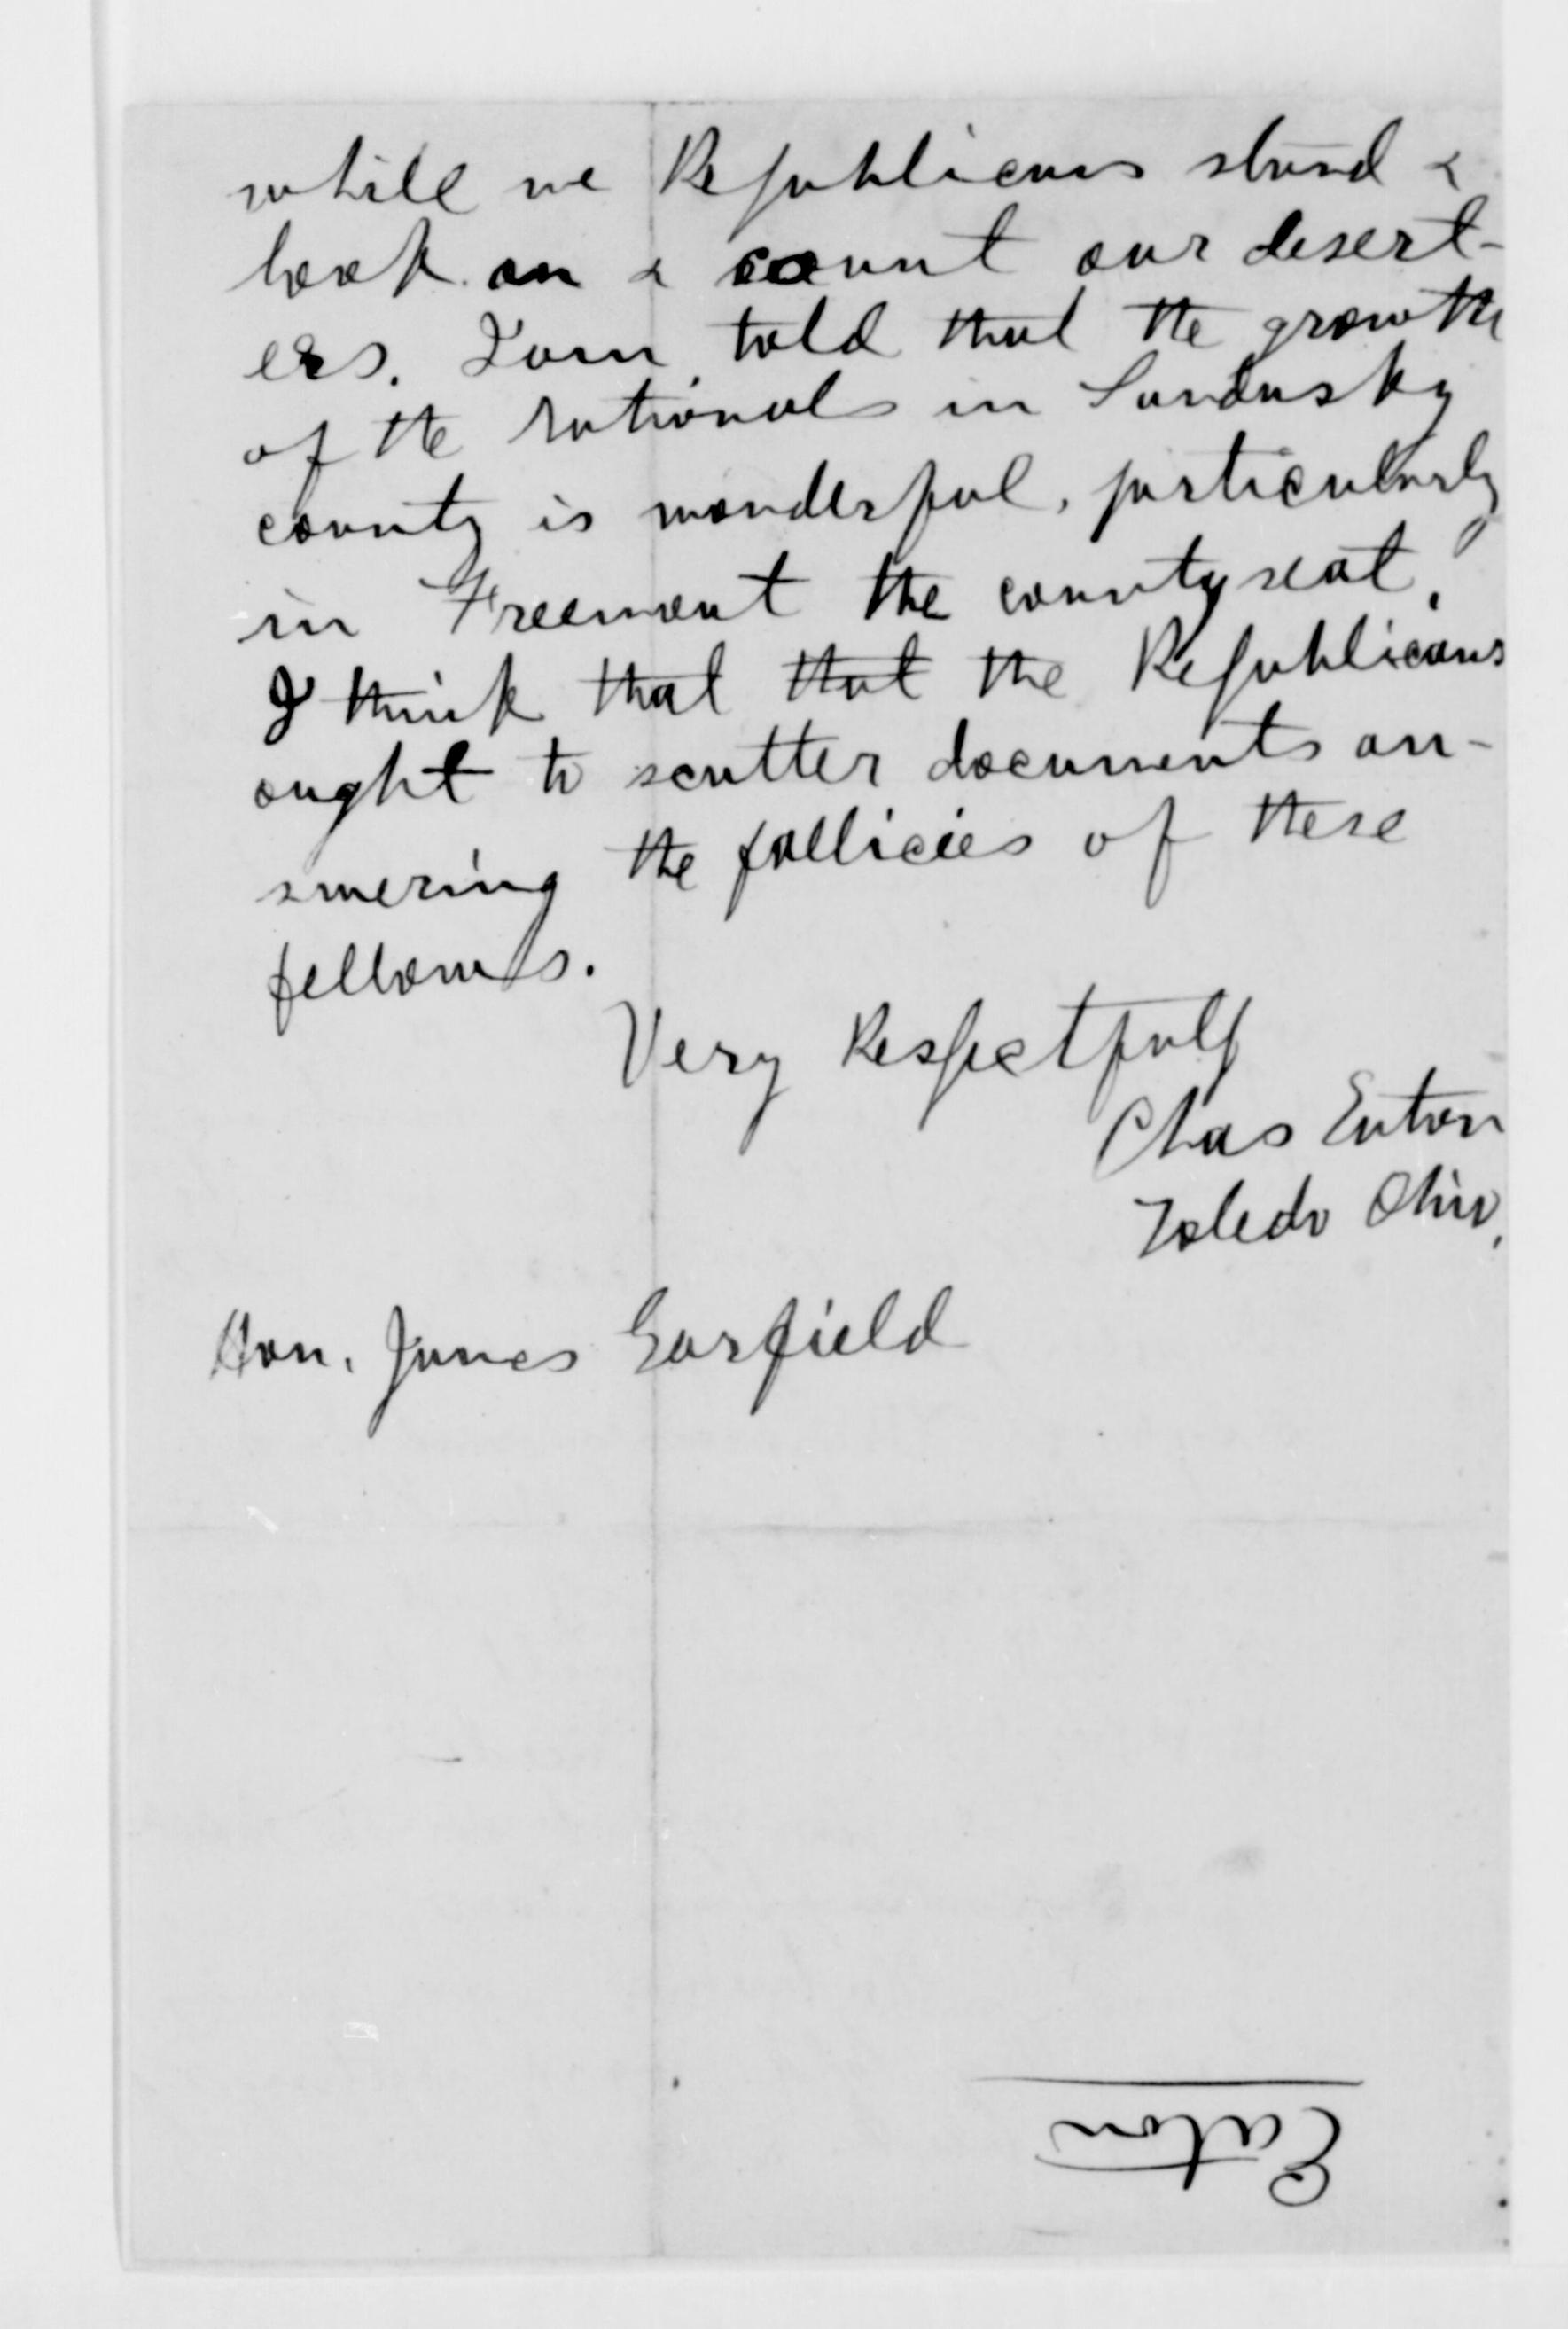 while we Republicans stand &
look on & count our desert-
ers. I am told that the growth
of the nationals in Sandusky
county is wonderful, particularly
in Freemont the county seat.
I think that that the Republicans
ought to scatter documents an-
swering the fallicies of these
fellows.
Very Respectfully
Chas Eaton
Toledo Ohio,
Hon. James Garfield
Eaton